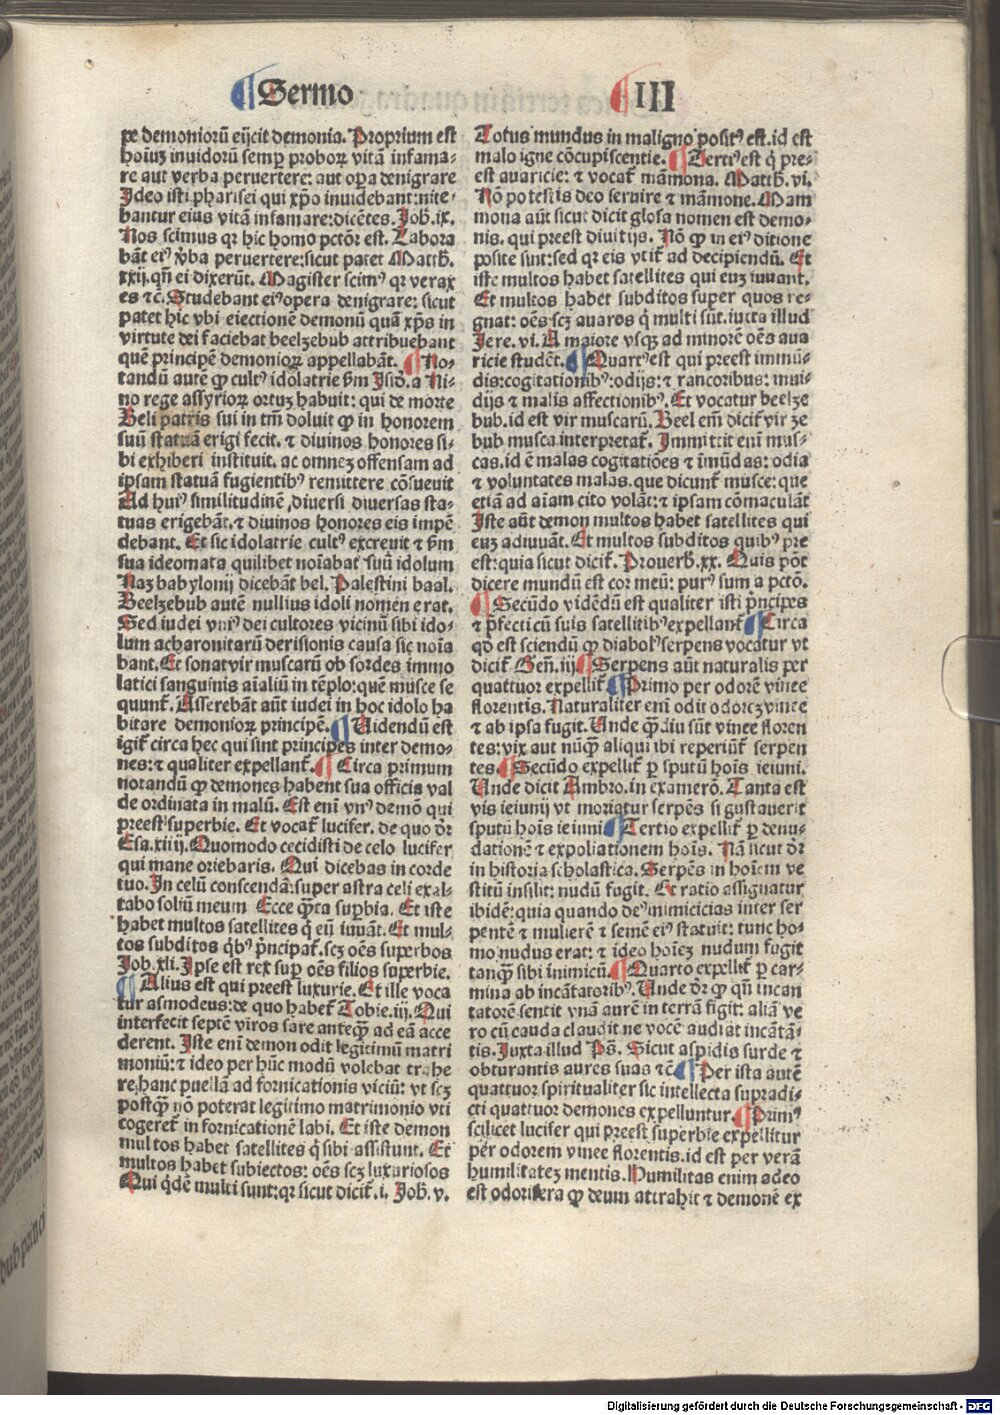 ¶ Sermo
¶ III
pe demoniorū eijcit demonia. Proprium est
hoīuꝫ inuidorū semꝑ proboꝝ vitā infama⸗
re aut verba peruertere: aut oꝑa denigrare
Ideo isti pharisei qui xp̄o inuidebant: nite⸗
bantur eius vitā infamare: dicētes. Joh̄. ix.
Nos scimus qꝛ hic homo pctōr est. Labora
bāt eiꝰ v̓ba peruertere: sicut patet Matth̄.
xxij. qn̄ ei dixerūt. Magister scimꝰ qꝛ verax
es ⁊c̄. Studebant eiꝰ opera denigrare: sicut
patet hic vbi eiectionē demonū quā xp̄s in
virtute dei faciebat beelzebub attribuebant
quē principē demonioꝝ appellabāt. ¶ No⸗
tandū autē ꝙ cultꝰ idolatrie ẜm Isid̄. a Ni⸗
no rege assyrioꝝ ortuꝫ habuit: qui de morte
Beli patris sui in tm̄ doluit ꝙ in honorem
suū statuā erigi fecit. ⁊ diuinos honores si⸗
bi exhiberi instituit. ac omneꝫ offensam ad
ip̄sam statuā fugientibꝰ remittere cōsueuit
Ad huiꝰ similitudinē diuersi diuersas sta⸗
tuas erigebāt. ⁊ diuinos honores eis impē
debant. Et sic idolatrie cultꝰ excreuit ⁊ ẜm
sua ideomata quilibet noīabat suū idolum
Naꝫ babylonij dicebāt bel. Palestini baal.
Beelzebub autē nullius idoli nomen erat.
Sed iudei vniꝰ dei cultores vicinū sibi ido⸗
lum acharonitarū derisionis causa sic noīa
bant. Et sonat vir muscarū ob sordes immo
latici sanguinis aīaliū in tēplo: quē musce se
quunt̄. Asserebāt aūt iudei in hoc idolo ha
bitare demonioꝝ principē. ¶ Uidendū est
igit̄ circa hec qui sint principes inter demo⸗
nes: ⁊ qualiter expellant̄. ¶ Circa primum
notandū ꝙ demones habent sua officia val
de ordinata in malū. Est enī vnꝰ demō qui
preest superbie. Et vocat̄ lucifer. de quo dr̄
Esa. xiiij. Quomodo cecidisti de celo lucifer
qui mane oriebaris. Qui dicebas in corde
tuo. In celū conscendā: super astra celi exal⸗
tabo soliū meum Ecce q̄ta suꝑbia. Et iste
habet multos satellites q̇ eū iuuāt. Et mul⸗
tos subditos q̇bꝰ pr̄ncipat̄. scꝫ oēs superbos
Job. xli. Ipse est rex suꝑ oēs filios superbie.
¶ Alius est qui preest luxurie. Et ille voca
tur asmodeus: de quo habet̄ Tobie. iij. Qui
interfecit septē viros sare anteq̄ꝫ ad eā acce
derent. Iste enī demon odit legitimū matri
moniū: ⁊ ideo per hūc modū volebat trahe
re hanc puellā ad fornicationis viciū: vt scꝫ
postq̄ꝫ nō poterat legitimo matrimonio vti
cogeret̄ in fornicationē labi. Et iste demon
multos habet satellites q̇ sibi assistunt. Et
multos habet subiectos: oēs scꝫ luxuriosos
Qui q̇dē multi sunt: qꝛ sicut dicit̄. i. Joh̄. v.
Totus mundus in maligno positꝰ est. id est
malo igne cōcupiscentie. ¶ Tertiꝰ est q̇ pre⸗
est auaricie: ⁊ vocat̄ māmona. Matth̄. vi.
Nō potestis deo seruire ⁊ māmone. Mam
mona aūt sicut dicit glosa nomen est demo⸗
nis. qui preest diuitijs. Nō ꝙ in eiꝰ ditione
posite sint: sed qꝛ eis vtit̄ ad decipiendū. Et
iste multos habet satellites qui euꝫ iuuant.
Et multos habet subditos super quos re⸗
gnat: oēs scꝫ auaros q̇ multi sūt. iuxta illud
Jere. vi. A maiore vsqꝫ ad minorē oēs aua
ricie studēt. ¶ Quartꝰ est qui preest immū⸗
dis: cogitationibꝰ: odijs: ⁊ rancoribus: inui⸗
dijs ⁊ malis affectionibꝰ. Et vocatur beelze
bub. id est vir muscarū. Beel em̄ dicit̄ vir ze
bub musca interpretat̄. Immittit enī mus⸗
cas. id ē malas cogitatiōes ⁊ īmūdas: odia
⁊ voluntates malas. que dicunt̄ musce: que
etiā ad aīam cito volāt: ⁊ ipsam cōmaculāt
Iste aūt demon multos habet satellites qui
euꝫ adiuuāt. Et multos subditos quibꝰ pre
est: quia sicut dicit̄. Prouerb̄. xx. Quis pōt
dicere mundū est cor meū: purꝰ sum a pctō.
¶ Secūdo vidēdū est qualiter isti pr̄ncipes
⁊ p̄fecti cū suis satellitibꝰ expellant̄ ¶ Circa
qd̄ est sciendū ꝙ diabolꝰ serpens vocatur vt
dicit̄ Gen̄. iij. ¶ Serpens aūt naturalis per
quattuor expellit̄ ¶ Primo per odorē vinee
florentis. Naturaliter enī odit odoreꝫ vinee
⁊ ab ipsa fugit. Unde q̄ꝫdiu sūt vinee floren
tes: vix aut nūq̄ꝫ aliqui ibi reperiūt̄ serpen
tes. ¶ Secūdo expellit̄ ꝑ sputū hoīs ieiuni.
Unde dicit Ambro. in examerō. Tanta est
vis ieiunij vt moriatur serpēs si gustauerit
sputū hoīs ieiuni ¶ Tertio expellit̄ ꝑ denu⸗
dationē ⁊ expoliationem hoīs. Nā sicut dr̄
in historia scholastica. Serpēs in hoīem ve
stitū insilit: nudū fugit. Et ratio assignatur
ibidē: quia quando deꝰ inimicicias inter ser
pentē ⁊ mulierē ⁊ semē eiꝰ statuit: tunc ho⸗
mo nudus erat: ⁊ ideo hoīeꝫ nudum fugit
tanq̄ꝫ sibi inimicū. ¶ Quarto expellit̄ ꝑ car⸗
mina ab incātatoribꝰ. Unde dr̄ ꝙ qn̄ incan
tatorē sentit vnā aurē in terrā figit: aliā ve
ro cū cauda claudit ne vocē audiat incātā⸗
tis. Juxta illud Ps̄. Sicut aspidis surde ⁊
obturantis aures suas ⁊c̄ ¶ Per ista autē
quattuor spiritualiter sic intellecta supradi⸗
cti quattuor demones expelluntur. ¶ Primꝰ
scilicet lucifer qui preest superbie expellitur
per odorem vinee florentis. id est per verā
humilitateꝫ mentis. Humilitas enim adeo
est odorifera ꝙ deum attrahit ⁊ demonē ex
Digitalisierung gefördert durch die Deutsche Forschungsgemeinschaft - DFG